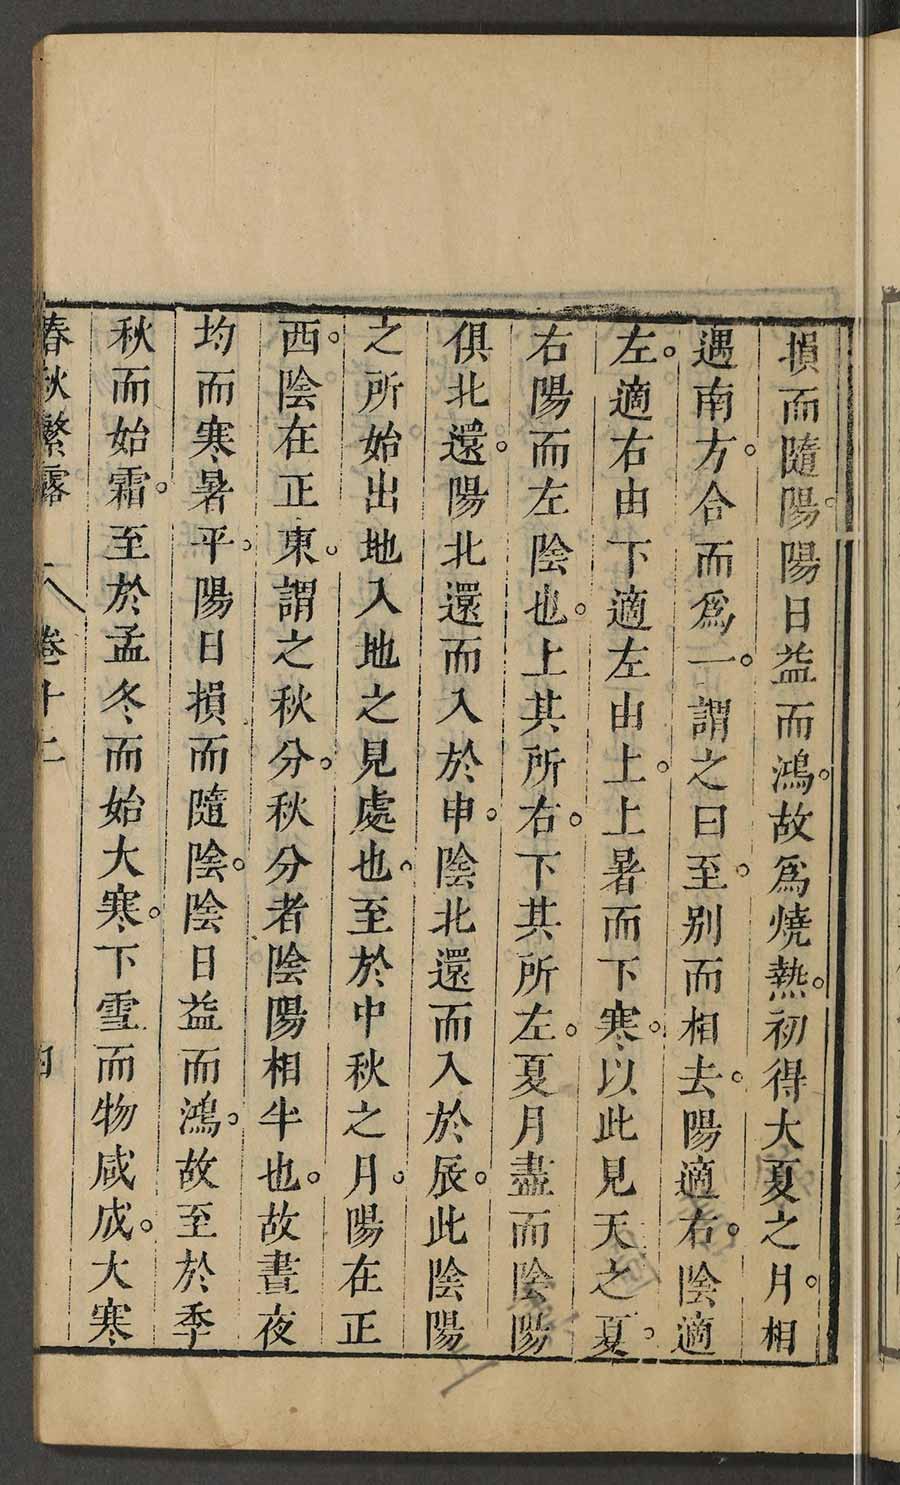 損而隨陽。陽日益而鴻。故爲燒熱。初得大夏之月。相
遇南方。合而爲一。謂之曰至。別而相去。陽適右。陰適
左。適右由下適左由上。上暑而下寒。以此見天之夏。
右陽而左陰也。上其所右。下其所左。夏月盡而陰陽
俱北還。陽北還而入於申。陰北還而入於辰。此陰陽
之所始出地入地之見處也。至於中秋之月。陽在正
西。陰在正東。謂之秋分。秋分者陰陽相半也。故晝夜
均而寒暑平。陽日損而隨陰。陰日益而鴻。故至於季
秋而始霜。至於孟冬而始大寒。下雪而物咸成。大寒
春秋繁露 卷十二 四